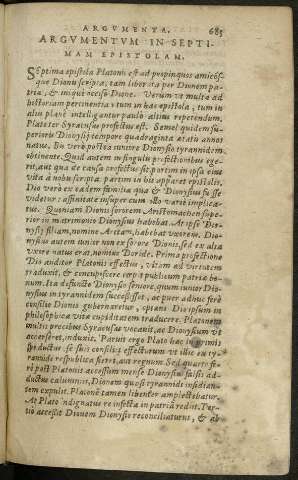 ARGVMENTA. 685
ARGVMENTVM IN SEPTI-
MAM EPISTOLAM.
Septima epistola Platonis est ad propinquos amicósque
Dionis scripta, tam liberata per Dionem patria,
Verùm vt multa ad
historiam pertinentia tum in hac epistola, tum in
alijs planè intelligantur paulò altius repetendum.
Plato ter Syracusas profectus est. Semel quidem superioris
Dionysij tempore quadraginta ætatis annos
natus. Bis verò postea iuniore Dionysio tyrannidem
obtinente. Quid autem in singulis profectionibus egerit,
aut qua de causa profectus sit partim in ipsa eius
vita à nobus scripta, partim in his apparet epistolis.
Dio verò ex eadem familia qua & Dionysius fuisse
videtur: affinitate insuper cum illo variè implicatus.
Quoniam Dionis sororem Aristomachen superior
in matrimonio Dionysius habebat. At ipse Dionysij
filiam, nomine Artam, habebat vxorem. Dionysius
autem iunior non ex sorore Dionis, sed ex alia
vxore natus erat, nomine Doride. Prima profectione
Dio auditor Platonis effectus, vitam ad virtutem
traduxit, & concupiscere cœpit publicum patriæ bonum.
Ita defuncto Dionysio seniore, quum iunior Dionysius
in tyrannidem successisset, ac puer adhuc ferè
consilio Dionis gubernaretur, optans Dio ipsum in
philosophicæ vitæ cupiditatem traducere, Platonem
multis precibus Syracusas vocauit, ac Dionysium vt
accerseret, induxit. Paruit ergo Plato hac
productus se suis consilijs effecturum vt illic ex tyrannide
respublica fieret, aut regnum. Sed quarto ferè
post Platonis accessum mense Dionysius falsis adductus
calumnijs, Dionem quasi tyrannidi insidiantem
expulit. Platonē tamen libenter amplectebatur.
At Plato indignatus re infecta in patriā redijt. Tertiò
accessit Dionem Dionysio reconciliaturus, & ab